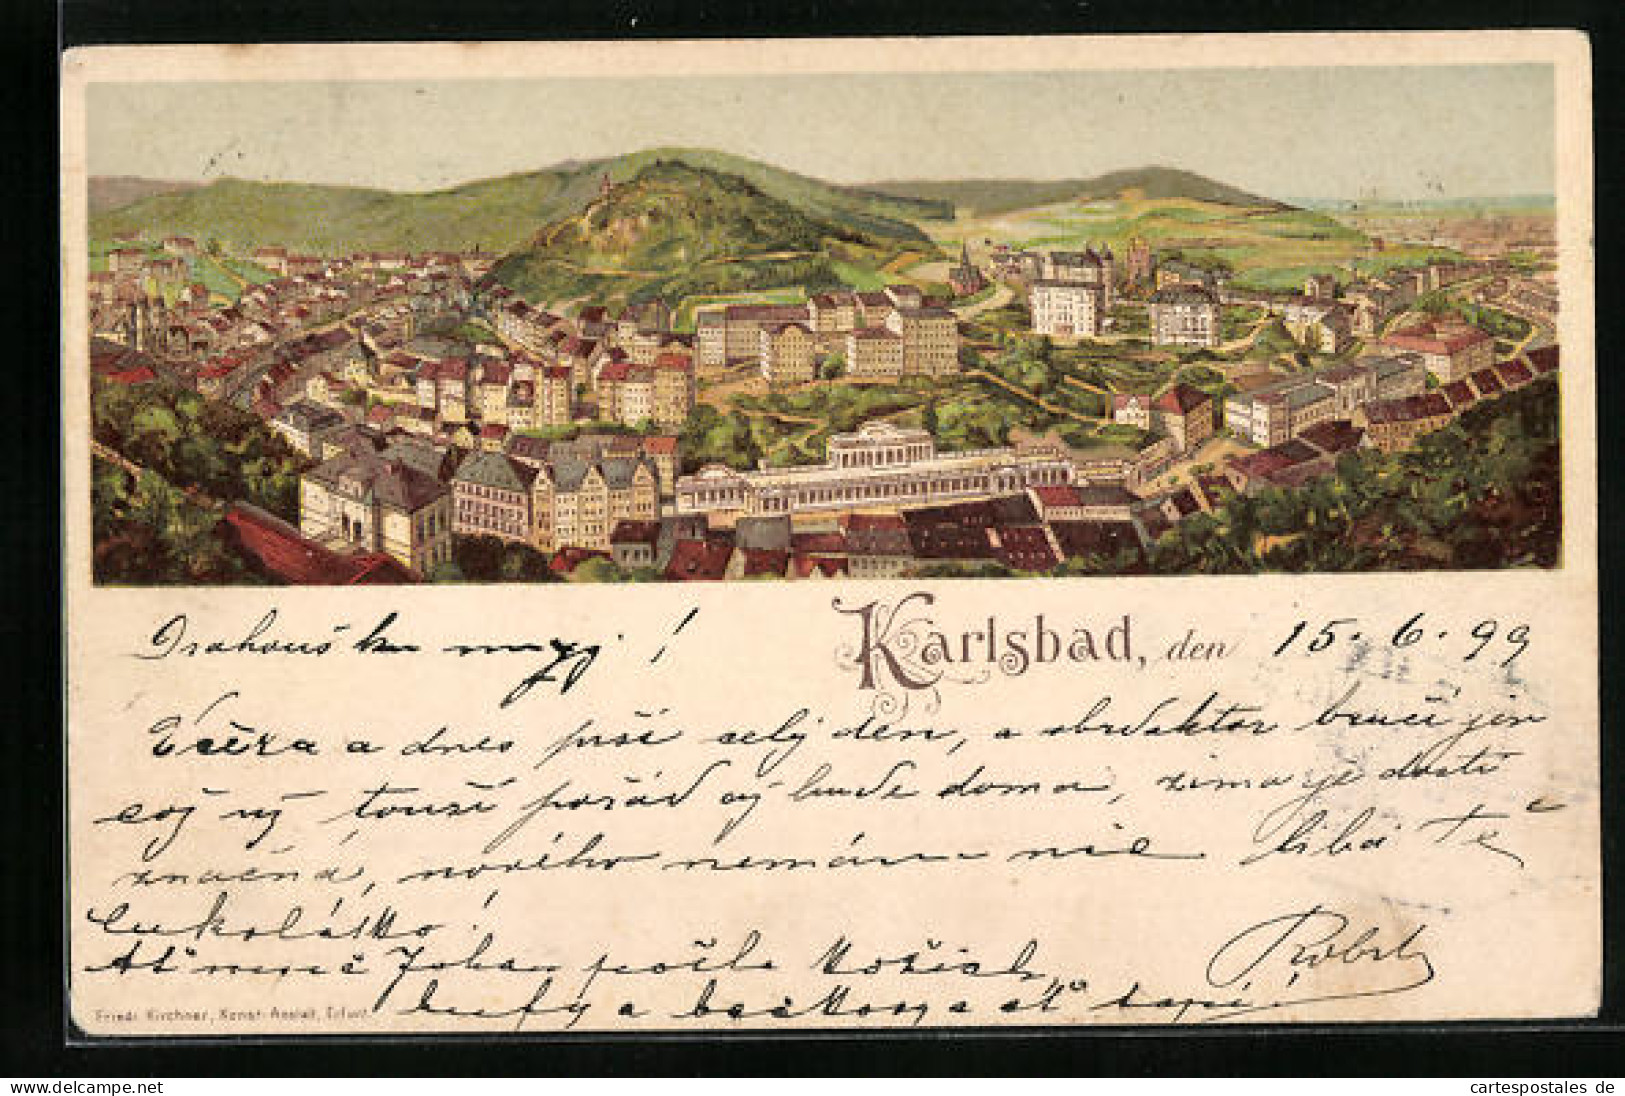 Drahoušku můj!
Karlsbad, den 15. 6. 99
Včera a dnes prší celý den, a obrdoktor bručí jen
což ný touží pořád vý bude doma, zima je dosti
značná, nového nemám nic líbá Tě
čukoládko!
Ať mně Johan pošle
a ať topí!
Friedr. Kirchner, Kunst-Anstalt, Erfurt.
www.delcampe.net
cartespostales de